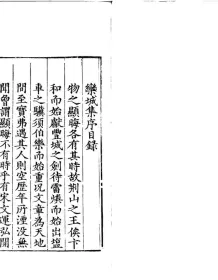 欒城集序目錄
物之顯晦各有其時故荊山之玉俟卞
和而始獻豐城之劍待雷煥而始出鹽
車之驥須伯樂而始重況文章為天地
間至寶弗遇其人則空歷年所湮沒無
聞曾謂顯晦不有時乎有宋文運弘開